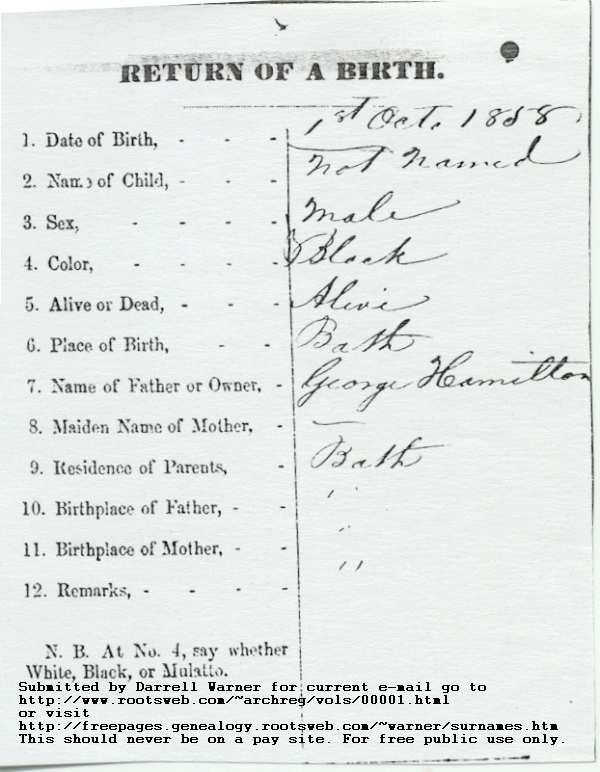 RETURN OF A BIRTH.
1. Date of Birth, - - - 1st Oct. 1858
2. Name of Child, - - - Not Named
3. Sex, - - - - Male
4. Color, - - - - Black
5. Alive or Dead, - - - Alive
6. Place of Birth, - - Bath
7. Name of Father or Owner, - George Hamilton
8. Maiden Name of Mother, - —
9. Residence of Parents, - Bath
10. Birthplace of Father, - - "
11. Birthplace of Mother, - - "
12. Remarks, - - - - "
N. B. At No. 4, say whether
White, Black, or Mulatto.
Submitted by Darrell Warner for current e-mail go to
http://www.rootsweb.com/~archreg/vols/00001.html
or visit
http://freepages.genealogy.rootsweb.com/~warner/surnames.htm
This should never be on a pay site. For free public use only.